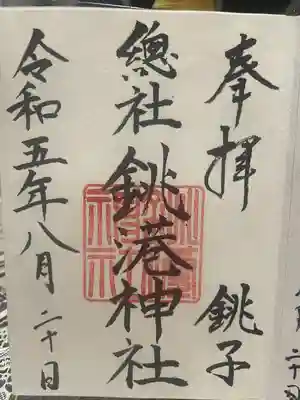 奉拝　銚子
總社銚港神社
令和五年八月二十日